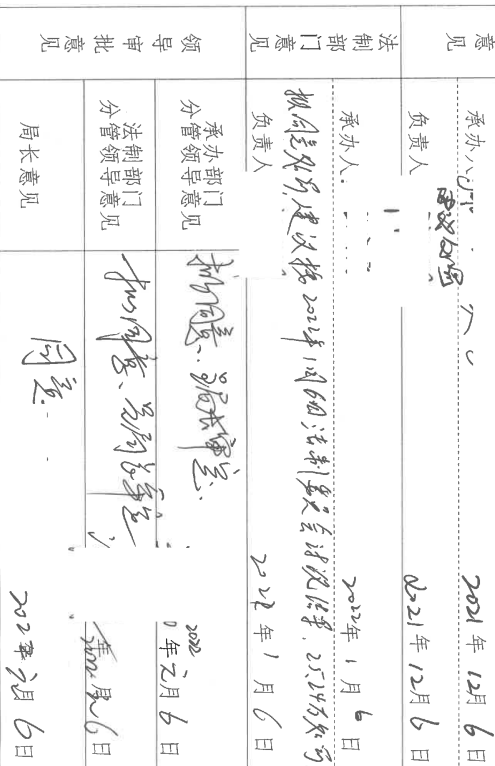 意见
承办人
2021年12月6日
负责人
2021年12月6日
法制部门意见
承办人:
2022年1月6日
拟同意处罚,建议按2022年1月6日法制委员会讨论结果
负责人
2022年1月6日
领导审批意见
承办部门
分管领导意见
拟同意、呈局长审定.
2022年元月6日
法制部门
分管领导意见
拟同意、呈局长审定
6日
局长意见
同意.
2022年元月6日